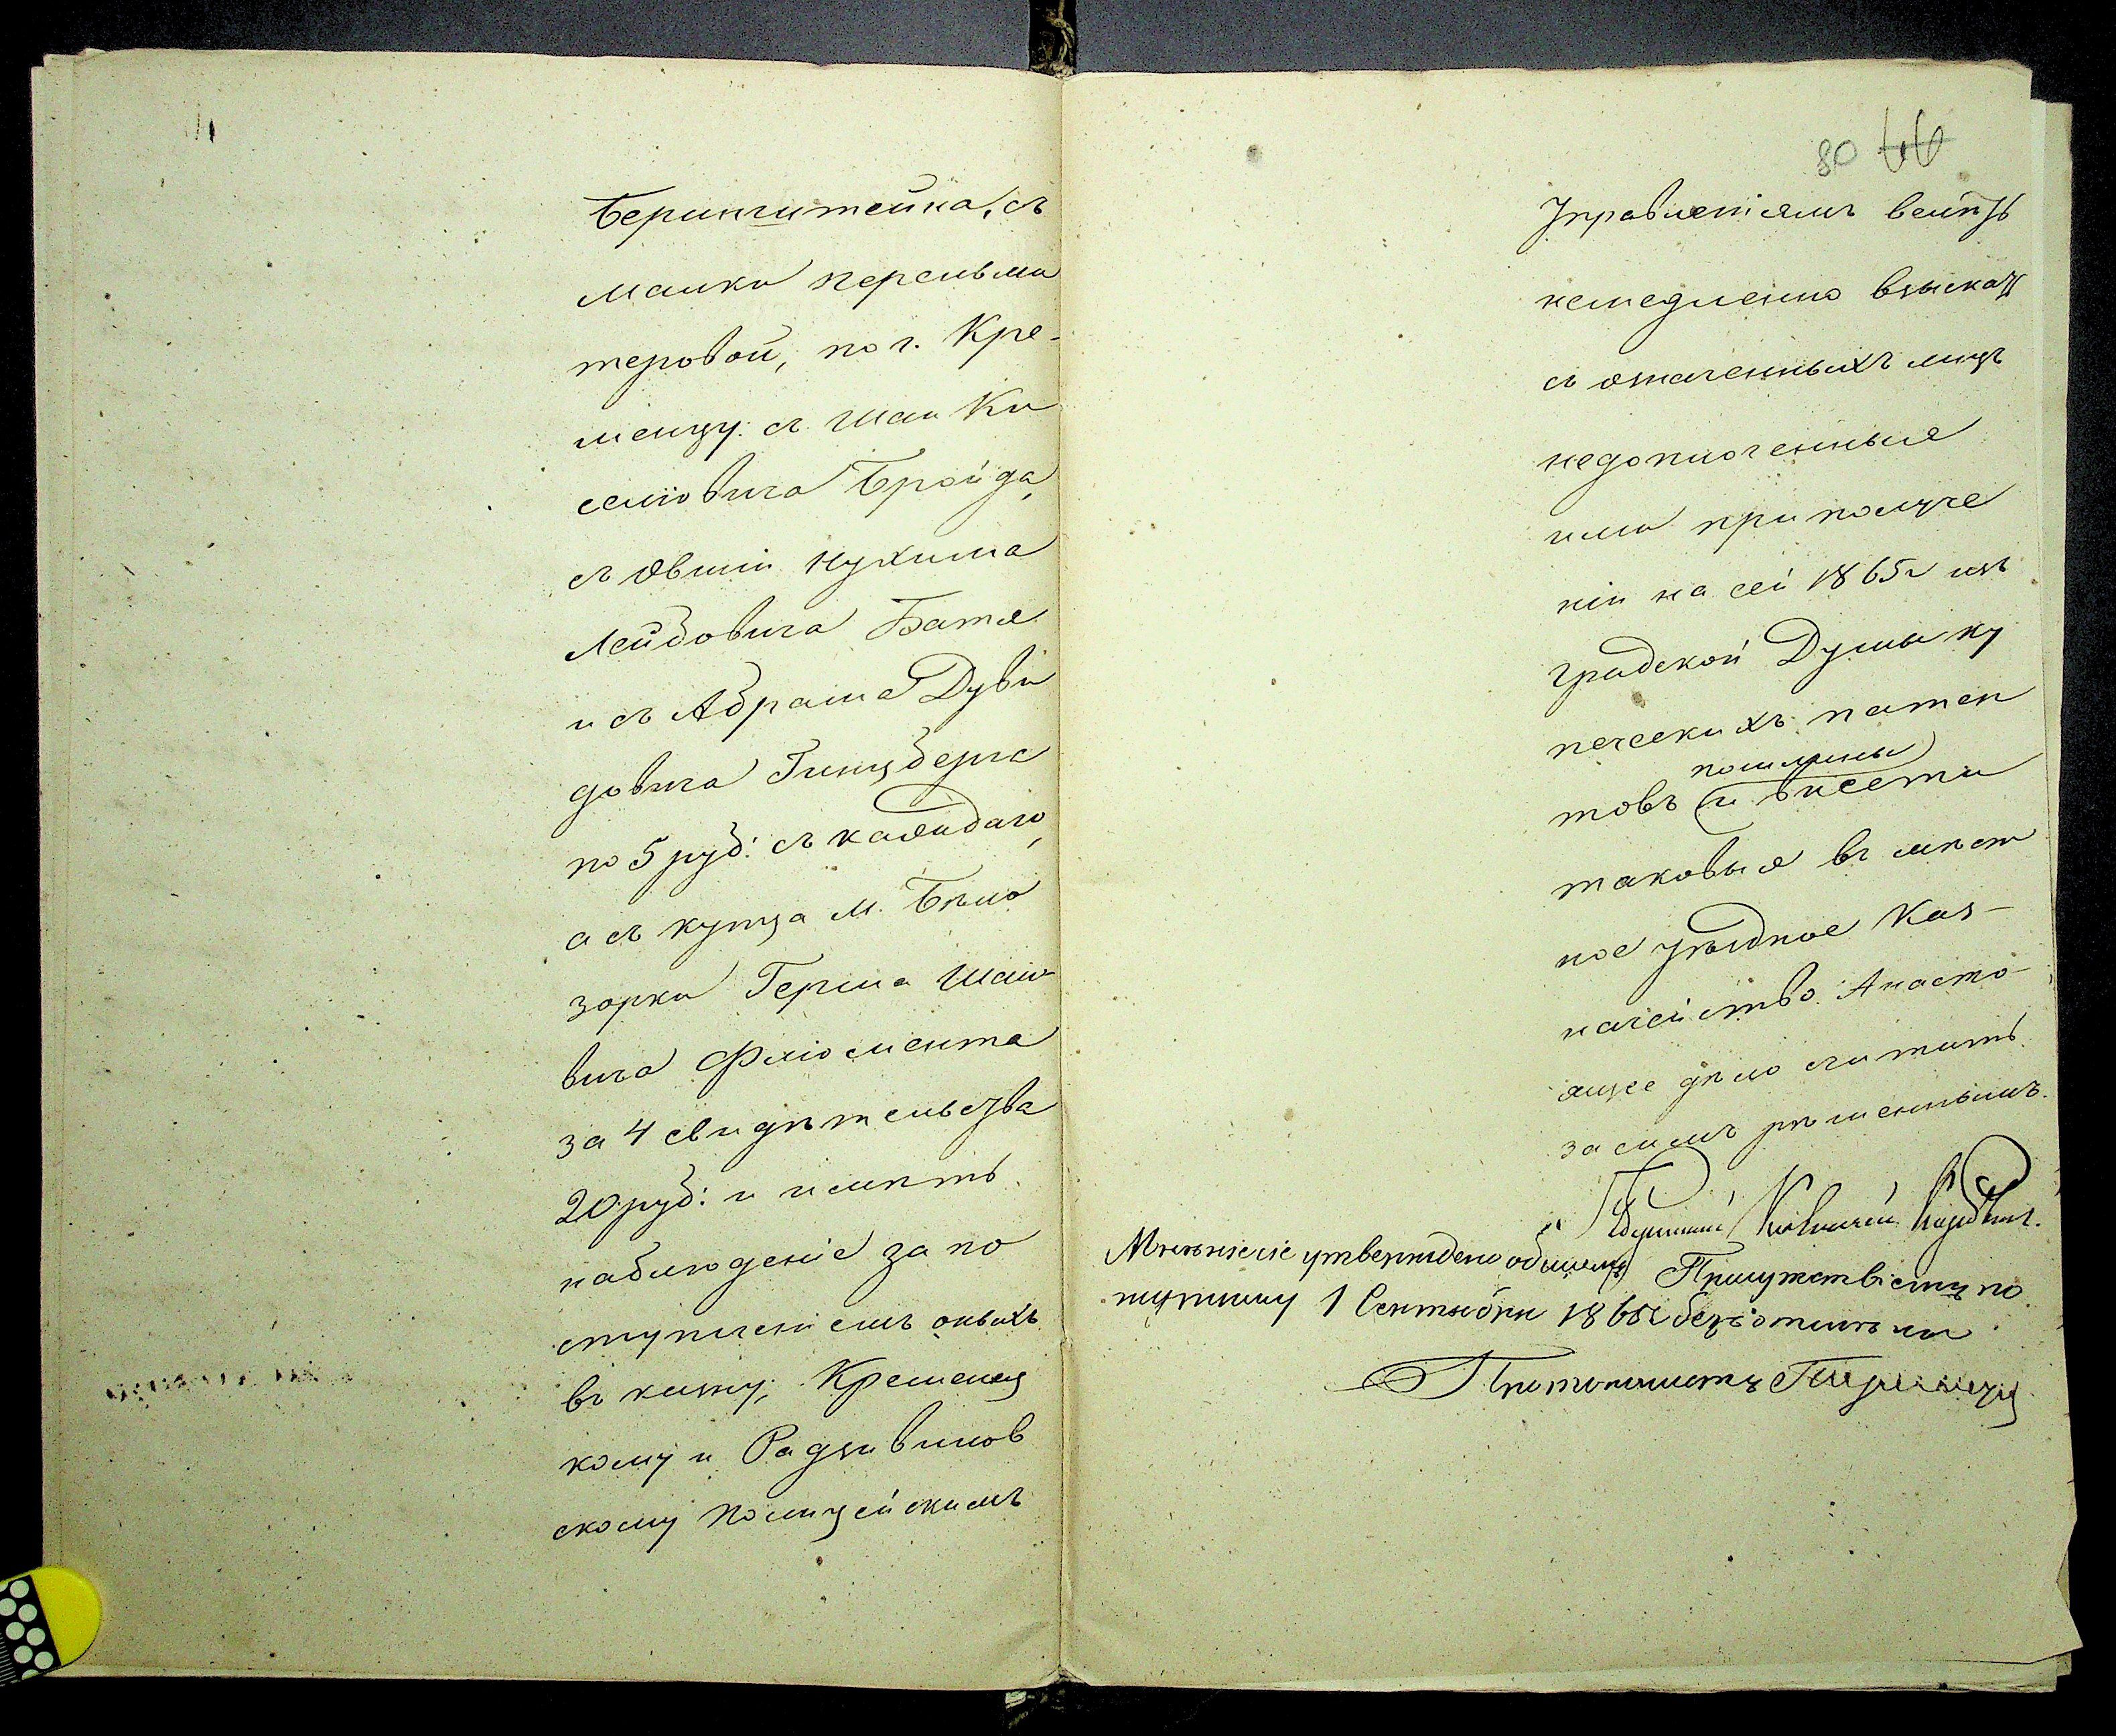 Беринштейна, съ
Малки Перельму
теровой, по г. Кре-
менцу: съ Шаи Ки
селiовича Бройда,
съ Овшiи Нухима
Лейбовича Батя
и съ Абрама Дуви
довича Гинцберга
по 5 руб: съ каждаго,
а съ купца м. Бѣло
зорки Герша
вича Флiомента
за 4 свидѣтельства
20 руб: и имѣть
наблюденiе за по
ступленiемъ оныхъ
въ казну; Кременец
кому и Радзивилов
скому Полицейскимъ
80
Управленiямъ велѣть
немедленно взыскать
съ означенныхъ лицъ
недоплоченные
ими при получе
нiи на сей 1865 г изъ
Градской Думы ку
печескихъ патен
пошлины
товъ и внести
таковыя въ мѣст
ное уѣздное Каз-
начейство. А насто-
ящее дѣло считать
за симъ рѣшеннымъ.
Мнѣнiе утверждено общимъ Присутствiемъ по
пункту 1 Сентября 1865 г безъ отмѣны
Протоколистъ